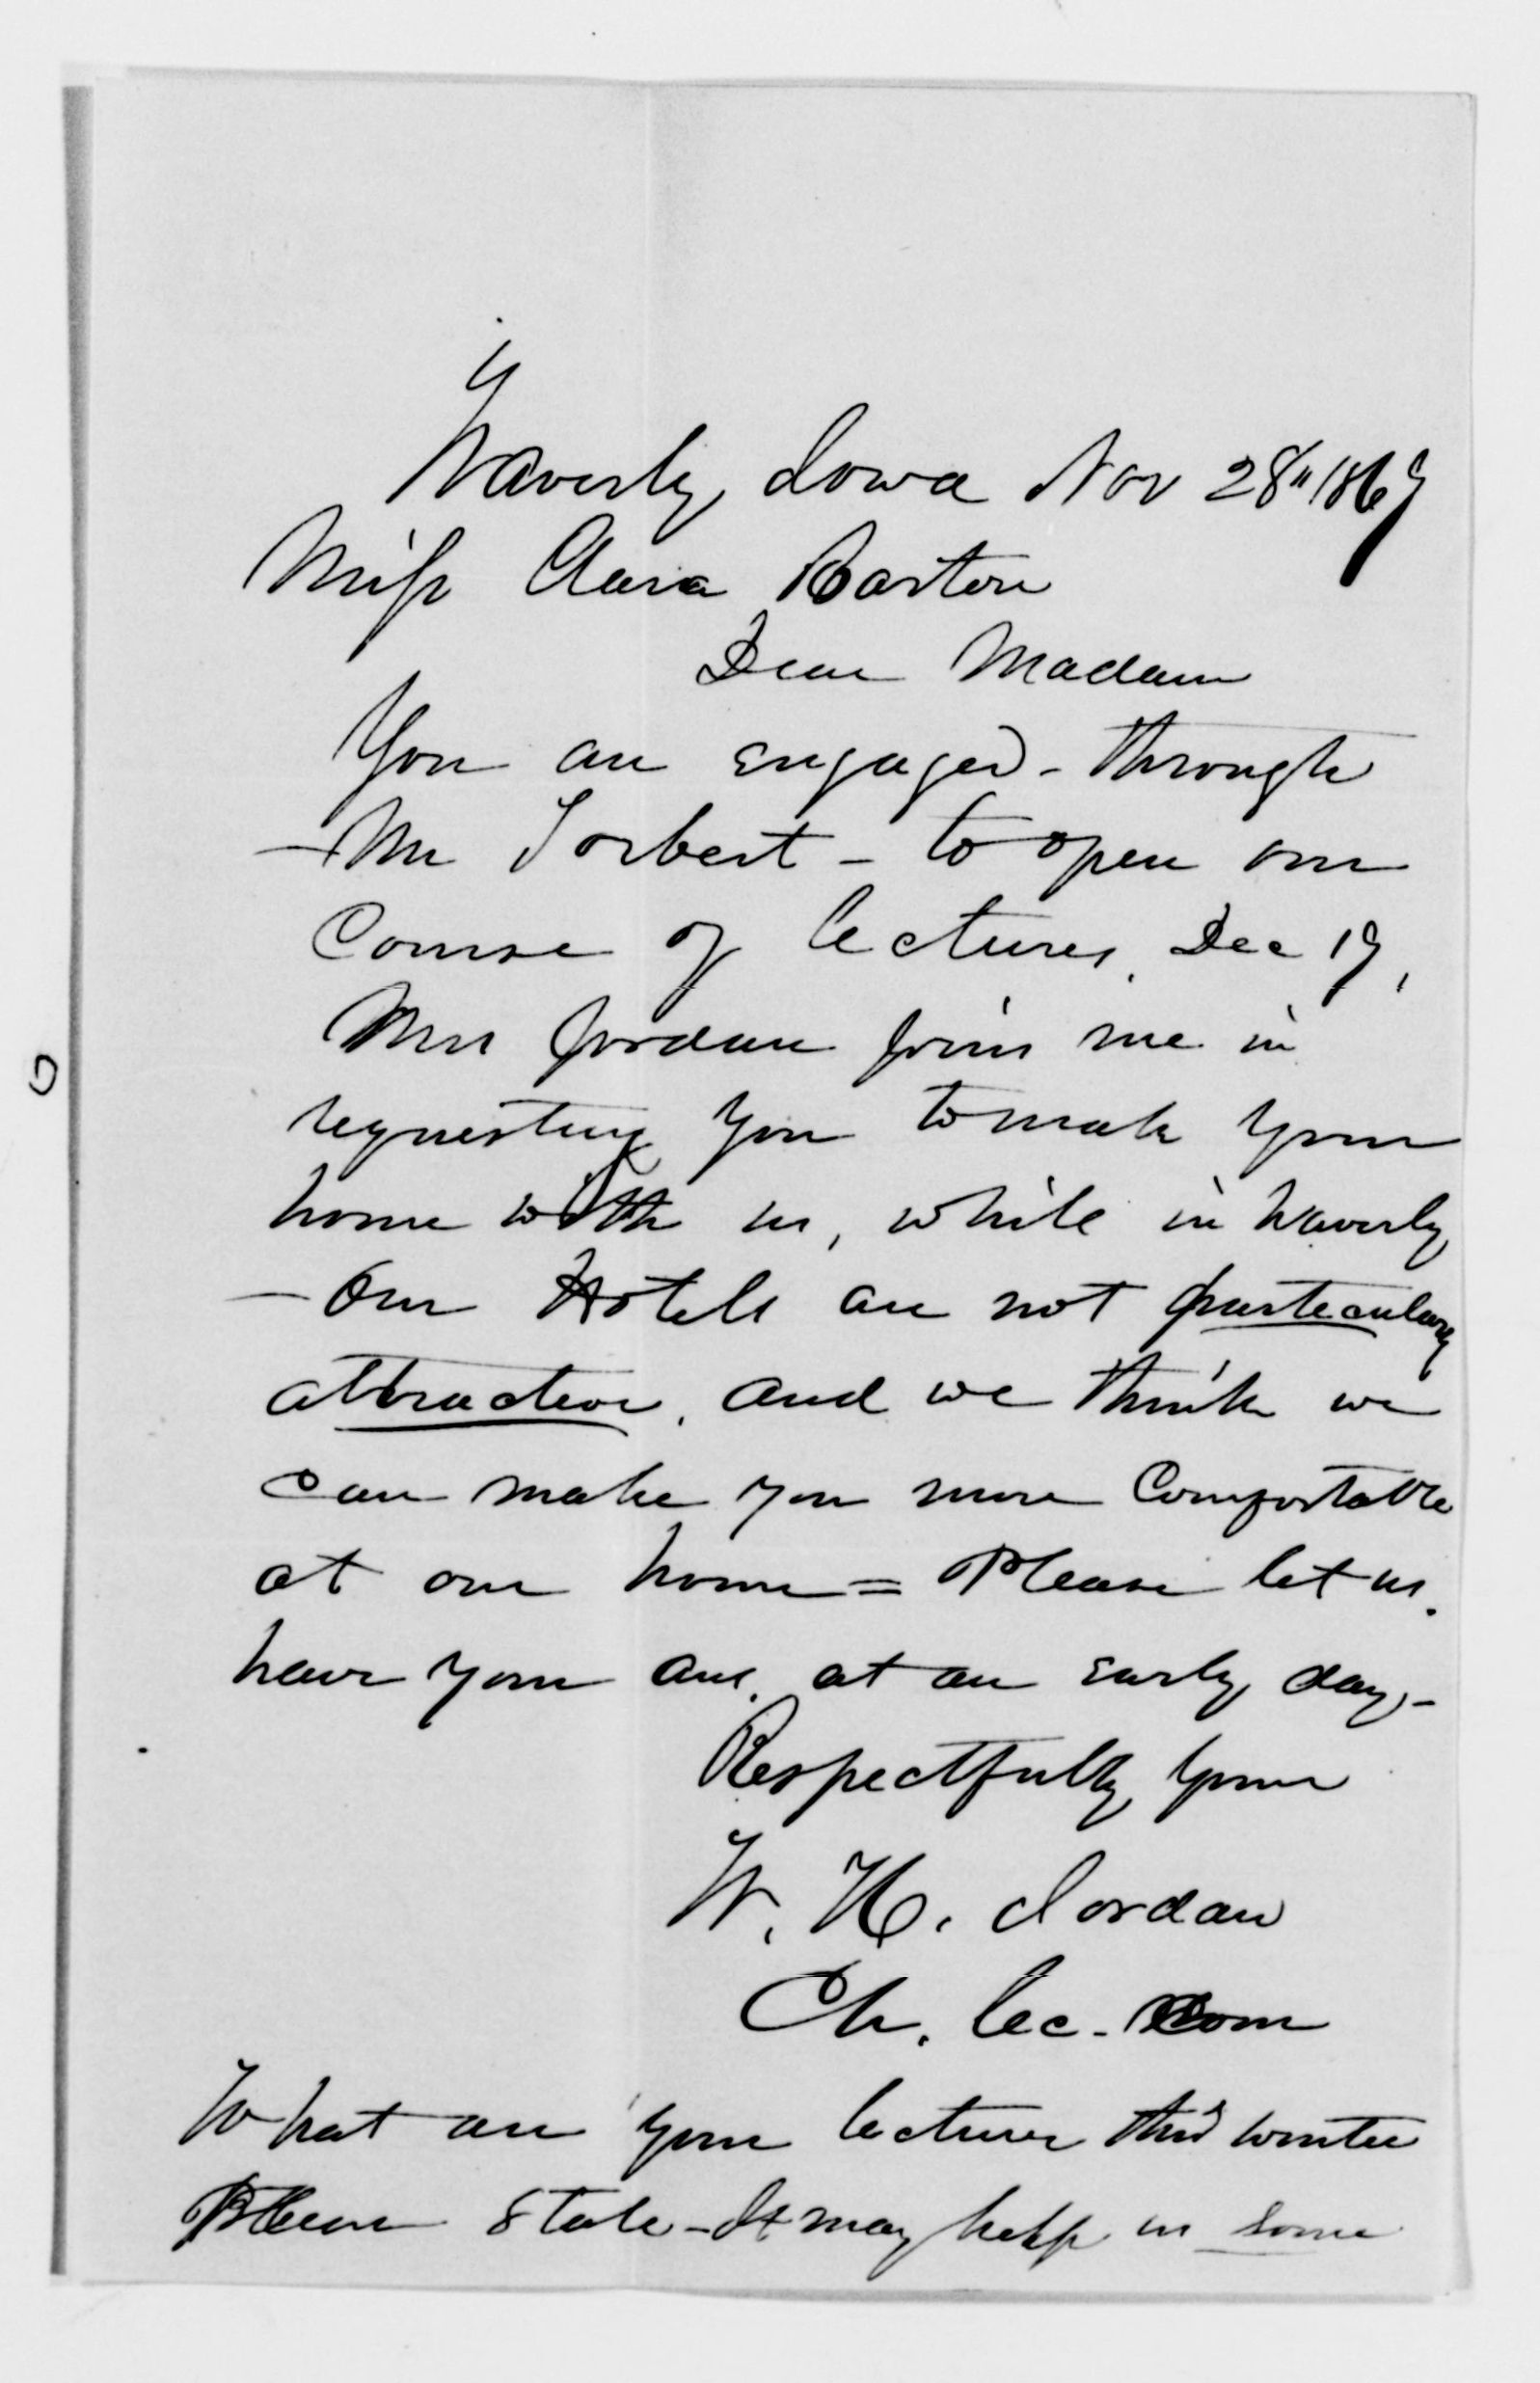 Waverly, Iowa Nov 28" 1867
Miss Clara Barton
Dear Madam
You are engaged - through
- Mr Torbert - to open our
Course of lectures, Dec 17,
Mrs Jordan joins me in
requesting you to make your
home with us, while in Waverly
- Our Hotels are not particularly
attractive, and we think we
can make you more Comfortable
at our home = Please let us
have your ans. at an early day, -
Respectfully yours
W. H. Jordan
Ch. Lec. Com
What are your lectures this winter
Please State - It may help us some